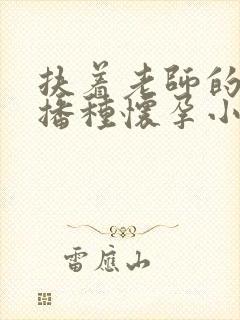 扶着老師的
播種懷孕小
雷應山